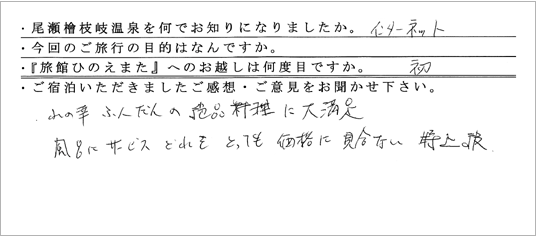 ・尾瀬檜枝岐温泉を何でお知りになりましたか。 インターネット
・今回のご旅行の目的はなんですか。
・『旅館ひのえまた』へのお越しは何度目ですか。 初
・ご宿泊いただきましたご感想・ご意見をお聞かせ下さい。
山の幸 ふんだんの 絶品料理に大満足
風呂にサービス どれをとっても 価格に見合ない 特上級